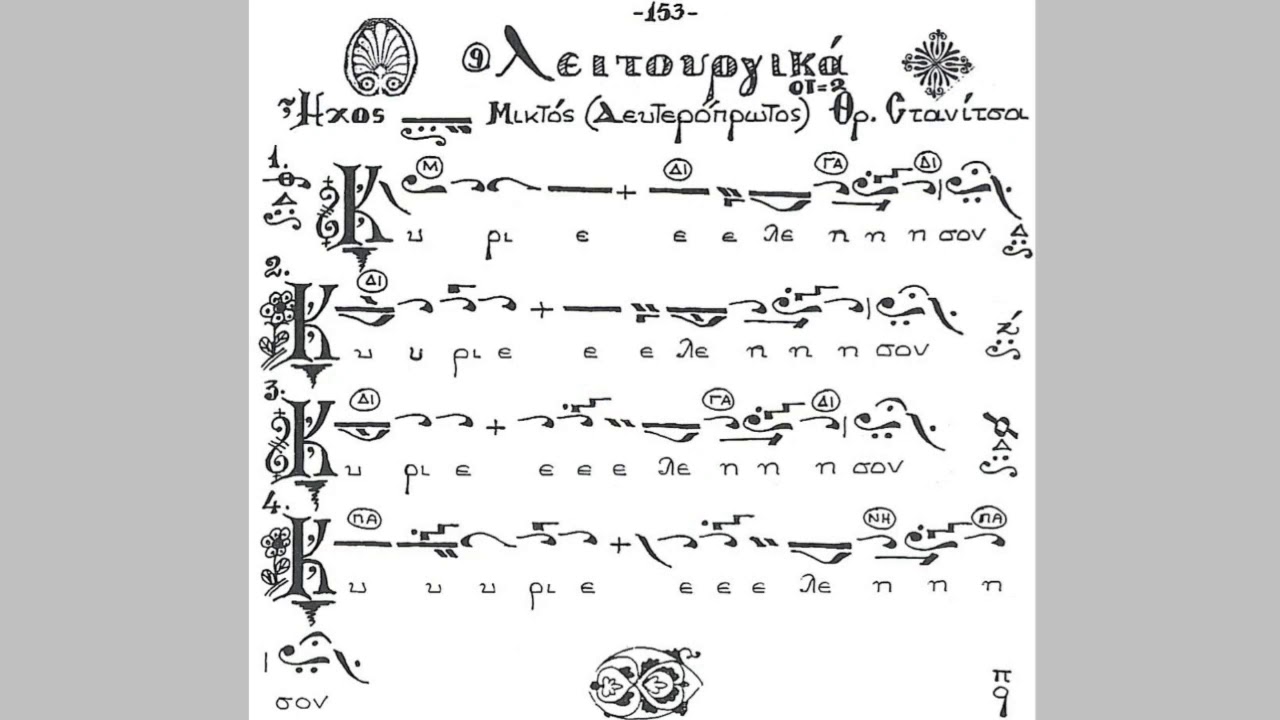 -153-
⑨ Λειτουργικά
οι=2
Ἦχος Μικτός (Δευτερόπρωτος) Θρ. Στανίτσα
1.
Μ ΔΙ ΓΑ ΔΙ
Κ υ ρι ε ε ε λε η η η σον Δ
2.
ΔΙ
Κ υ υ ρι ε ε ε λε η η η σον ζ́
3.
ΔΙ ΓΑ ΔΙ
Κ υ ρι ε ε ε ε λε η η η σον Δ
4.
ΠΑ ΝΗ ΠΑ
Κ υ υ υ ρι ε ε ε ε λε η η η
σον π
q